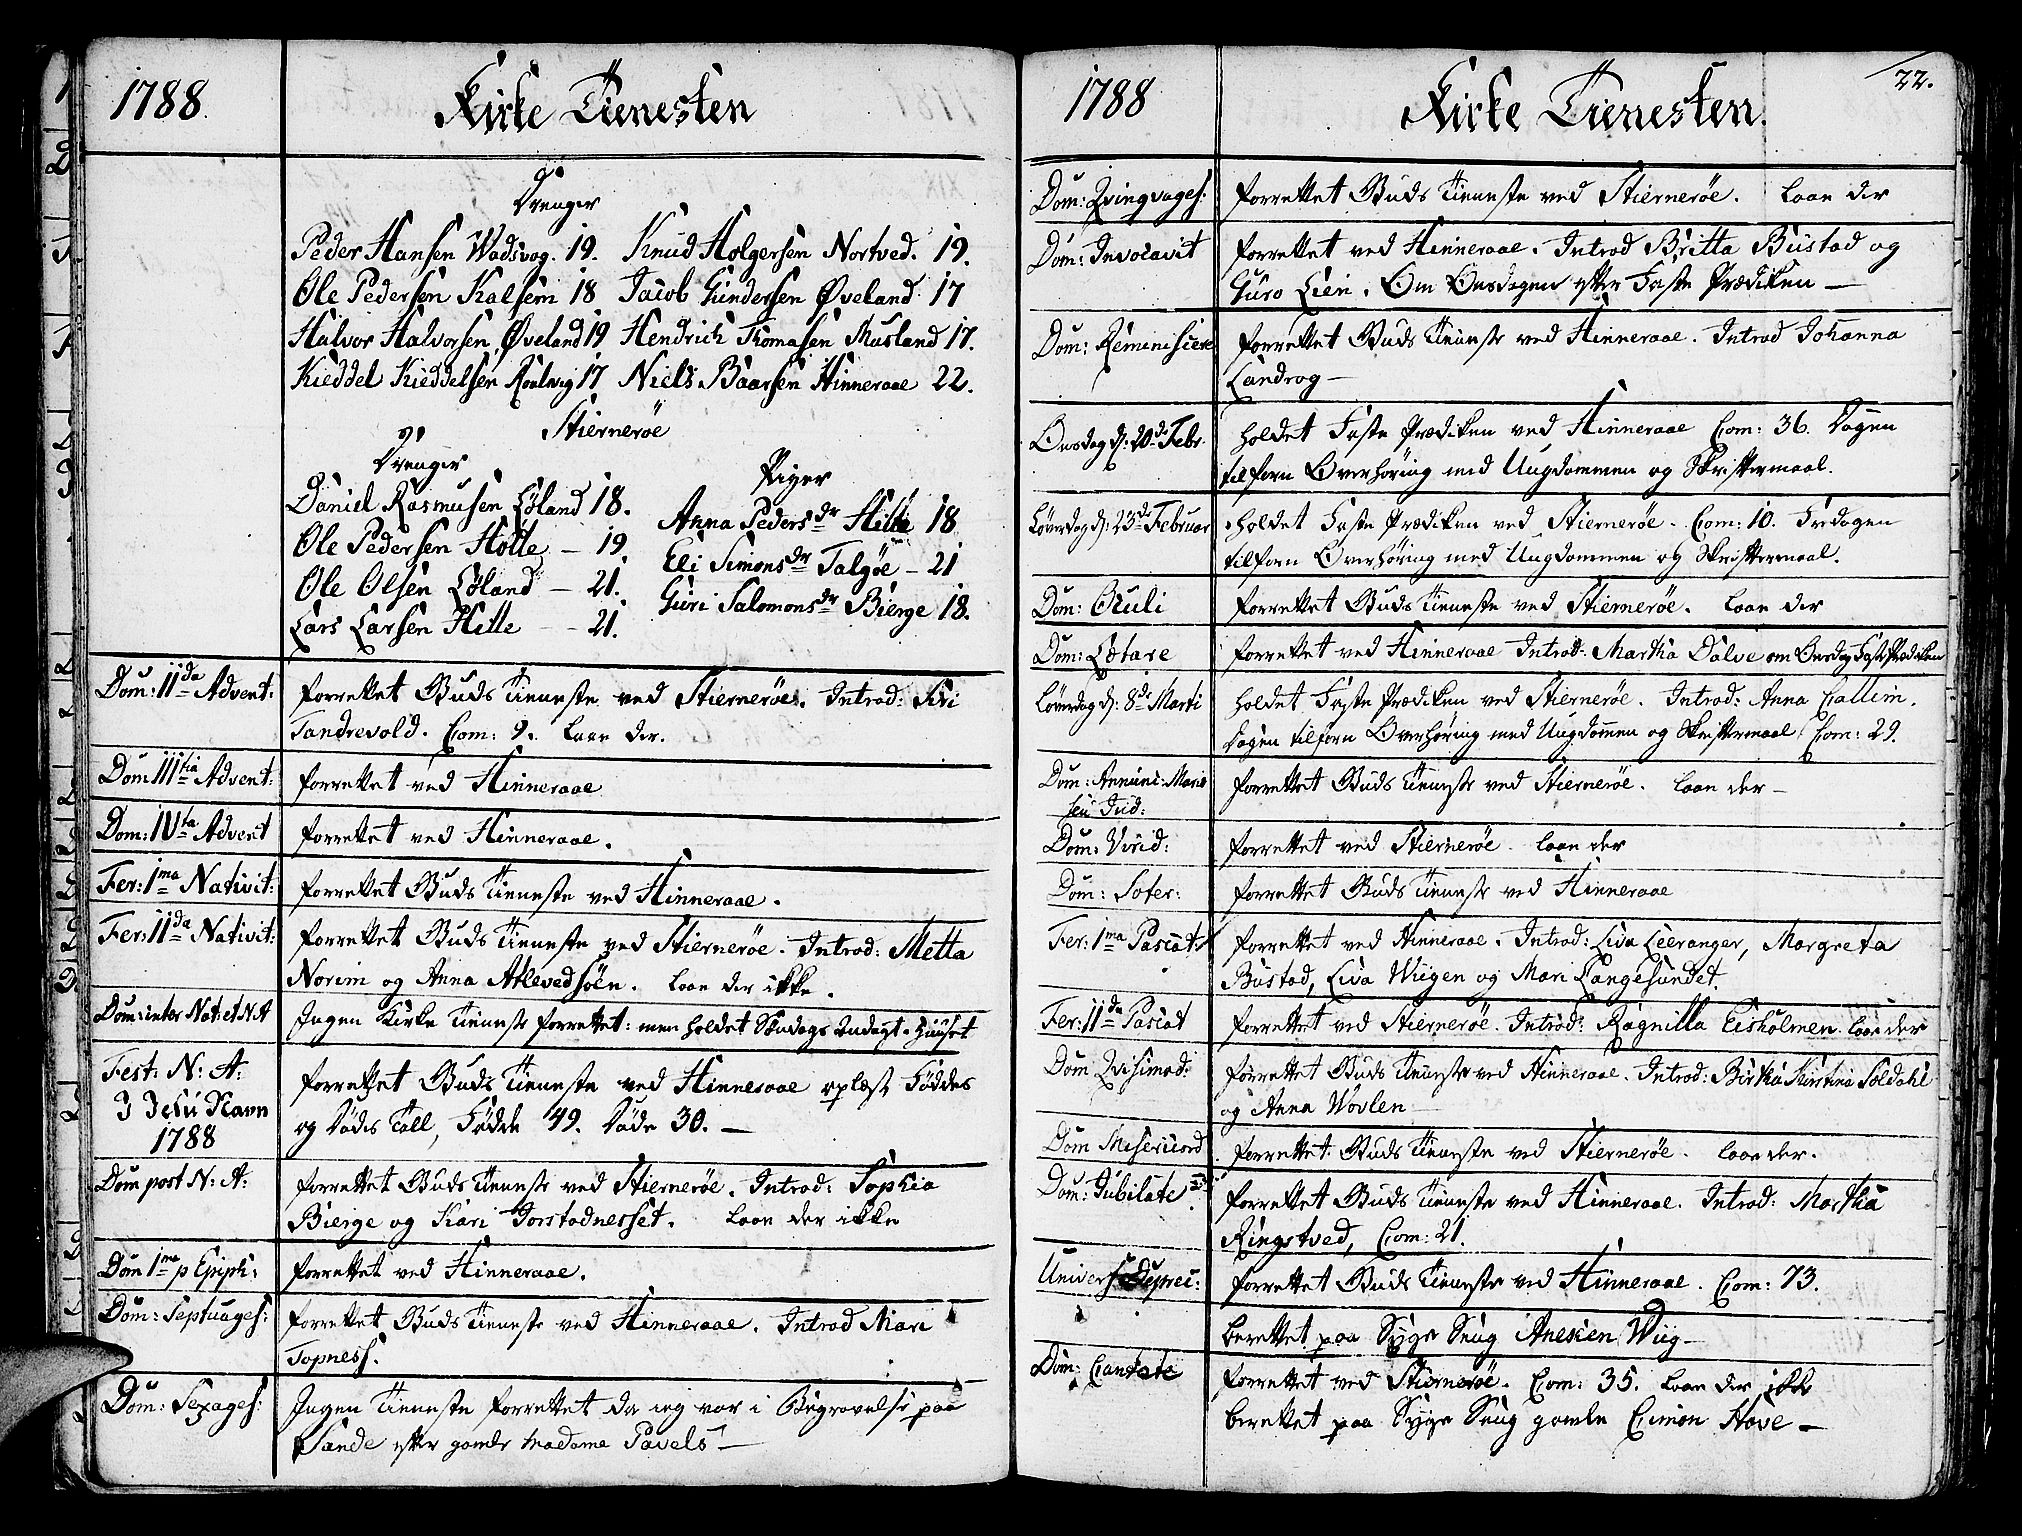 1788. Kirke Tienesten
Drenger
Peder Hansen Wadsvog. 19. Knud Holgersen Nortved. 19.
Ole Pedersen Kalsem 18 Jacob Gundersen Øveland 17
Halvor Halvorsen Øveland 19 Hendrich Thomasen Musland 17.
Kieddel Kieddelsen 17 Niels Baarsen Hinneraae 22.
Stiernerøe
Drenger Piger
Daniel Rasmusen Løland 18. Anna Peders dr Hille 18
Ole Pedersen Hølle – 19. Eli Simons dr Talgøe – 21
Ole Olsen Løland – 21. Guri Salomons dr Bierge 18.
Lars Larsen Hille – 21.
Dom: II da Advent: forrettet Guds Tieneste ved Stiernerøe. Introd: Siri
Tandrevold. Com: 9. laae der.
Dom III tia Advent: forrettet ved Hinneraae
Dom: IV ta Advent forrettet ved Hinneraae.
Fer: I ma Nativit: forrettet Guds Tieneste ved Hinneraae.
Fer: II da Nativit: forrettet Guds Tieneste ved Stiernerøe. Introd: Metta
Norim og Anna Atlevedsøen. laae der ikke.
Dom: inter Nat: et N: A Ingen Kirke Tieneste forrettet: men holdet Søndags Andagt i Huuset
Fest: N: A: forrettet Guds Tieneste ved Hinneraae oplæst Føddes
I Jesu Navn og Dødes Tall, Fødde 49. Døde 30. –
1788
Dom post N: A: forrettet Guds Tieneste ved Stiernerøe. Introd: Sophia
Bierge og Kari Jorstadnesset. laae der ikke
Dom I ma p Epiph: forrettet ved Hinneraae.
Dom: Septuages: forrettet Guds Tieneste ved Hinneraae. Introd Mari
Topness.
Dom: Sexages: Ingen Tieneste forrettet da ieg var i Begravelse paa
Sande efter gamle Madame Pavels –
1788 Kirke Tienesten. 22.
Dom: Qvinqvages: forrettet Guds Tieneste ved Stiernerøe. laae der
Dom: Invocavit forrettet ved Hinneraae. Introd Britta Bustad og
Guro Lien. Om Onsdagen efter Faste Prædiken –
Dom: Reminiscere forrettet Guds Tieneste ved Hinneraae. Introd Johanna
Landrog –
Onsdag d: 20 de Febr. holdet Faste Prædiken ved Hinneraae Com: 36. Dagen
tilforn Overhøring med Ungdommen og Skriftermaal.
Løverdag d: 23 de Februar holdet Faste Prædiken ved Stiernerøe. Com: 10. Fredagen
tilforn Overhøring med Ungdommen og Skriftermaal.
Dom: Oculi forrettet Guds Tieneste ved Stiernerøe. laae der
Dom: Lætare forrettet ved Hinneraae Introd: Martha Dalve om Onsdag Fastprædiken
Løverdag d: 8 de Marti holdet Faste Prædiken ved Stiernerøe. Introd: Anna Callim.
Dagen tilforn Overhøring med Ungdommen og Skriftermaal Com: 29.
Dom: Annunc: Mariæ forrettet Guds Tieneste ved Stiernerøe. laae der –
seu Jud:
Dom: Virid: forrettet ved Stiernerøe. laae der
Dom: Soter: forrettet Guds Tieneste ved Hinneraae
Fer: I ma Pascat: forrettet ved Hinneraae. Introd: Liva Leeranger, Margreta
Bustad, Liva Wiigen og Mari Langesundet.
Fer: II da Pascat forrettet ved Stiernerøe. Introd: Ragnilla Eisholmen. laae der
Dom Qvasimod: forrettet Guds Tieneste ved Hinneraae. Introd: Birtha Kirstina Soldahl
og Anna Wovlen –
Dom Misericord forrettet Guds Tieneste ved Stiernerøe. laae der.
Dom: Jubilate forrettet Guds Tieneste ved Hinneraae. Introd: Martha
Ringstved, Com: 21.
Univers: Deprec: forrettet Guds Tieneste ved Hinneraae. Com: 73.
berettet paa Syge Seng Anesken Wiig –
Dom: Cantate forrettet ved Stiernerøe. Com: 35. laae der ikke
berettet paa Syge Seng gamle Cimon Hove –